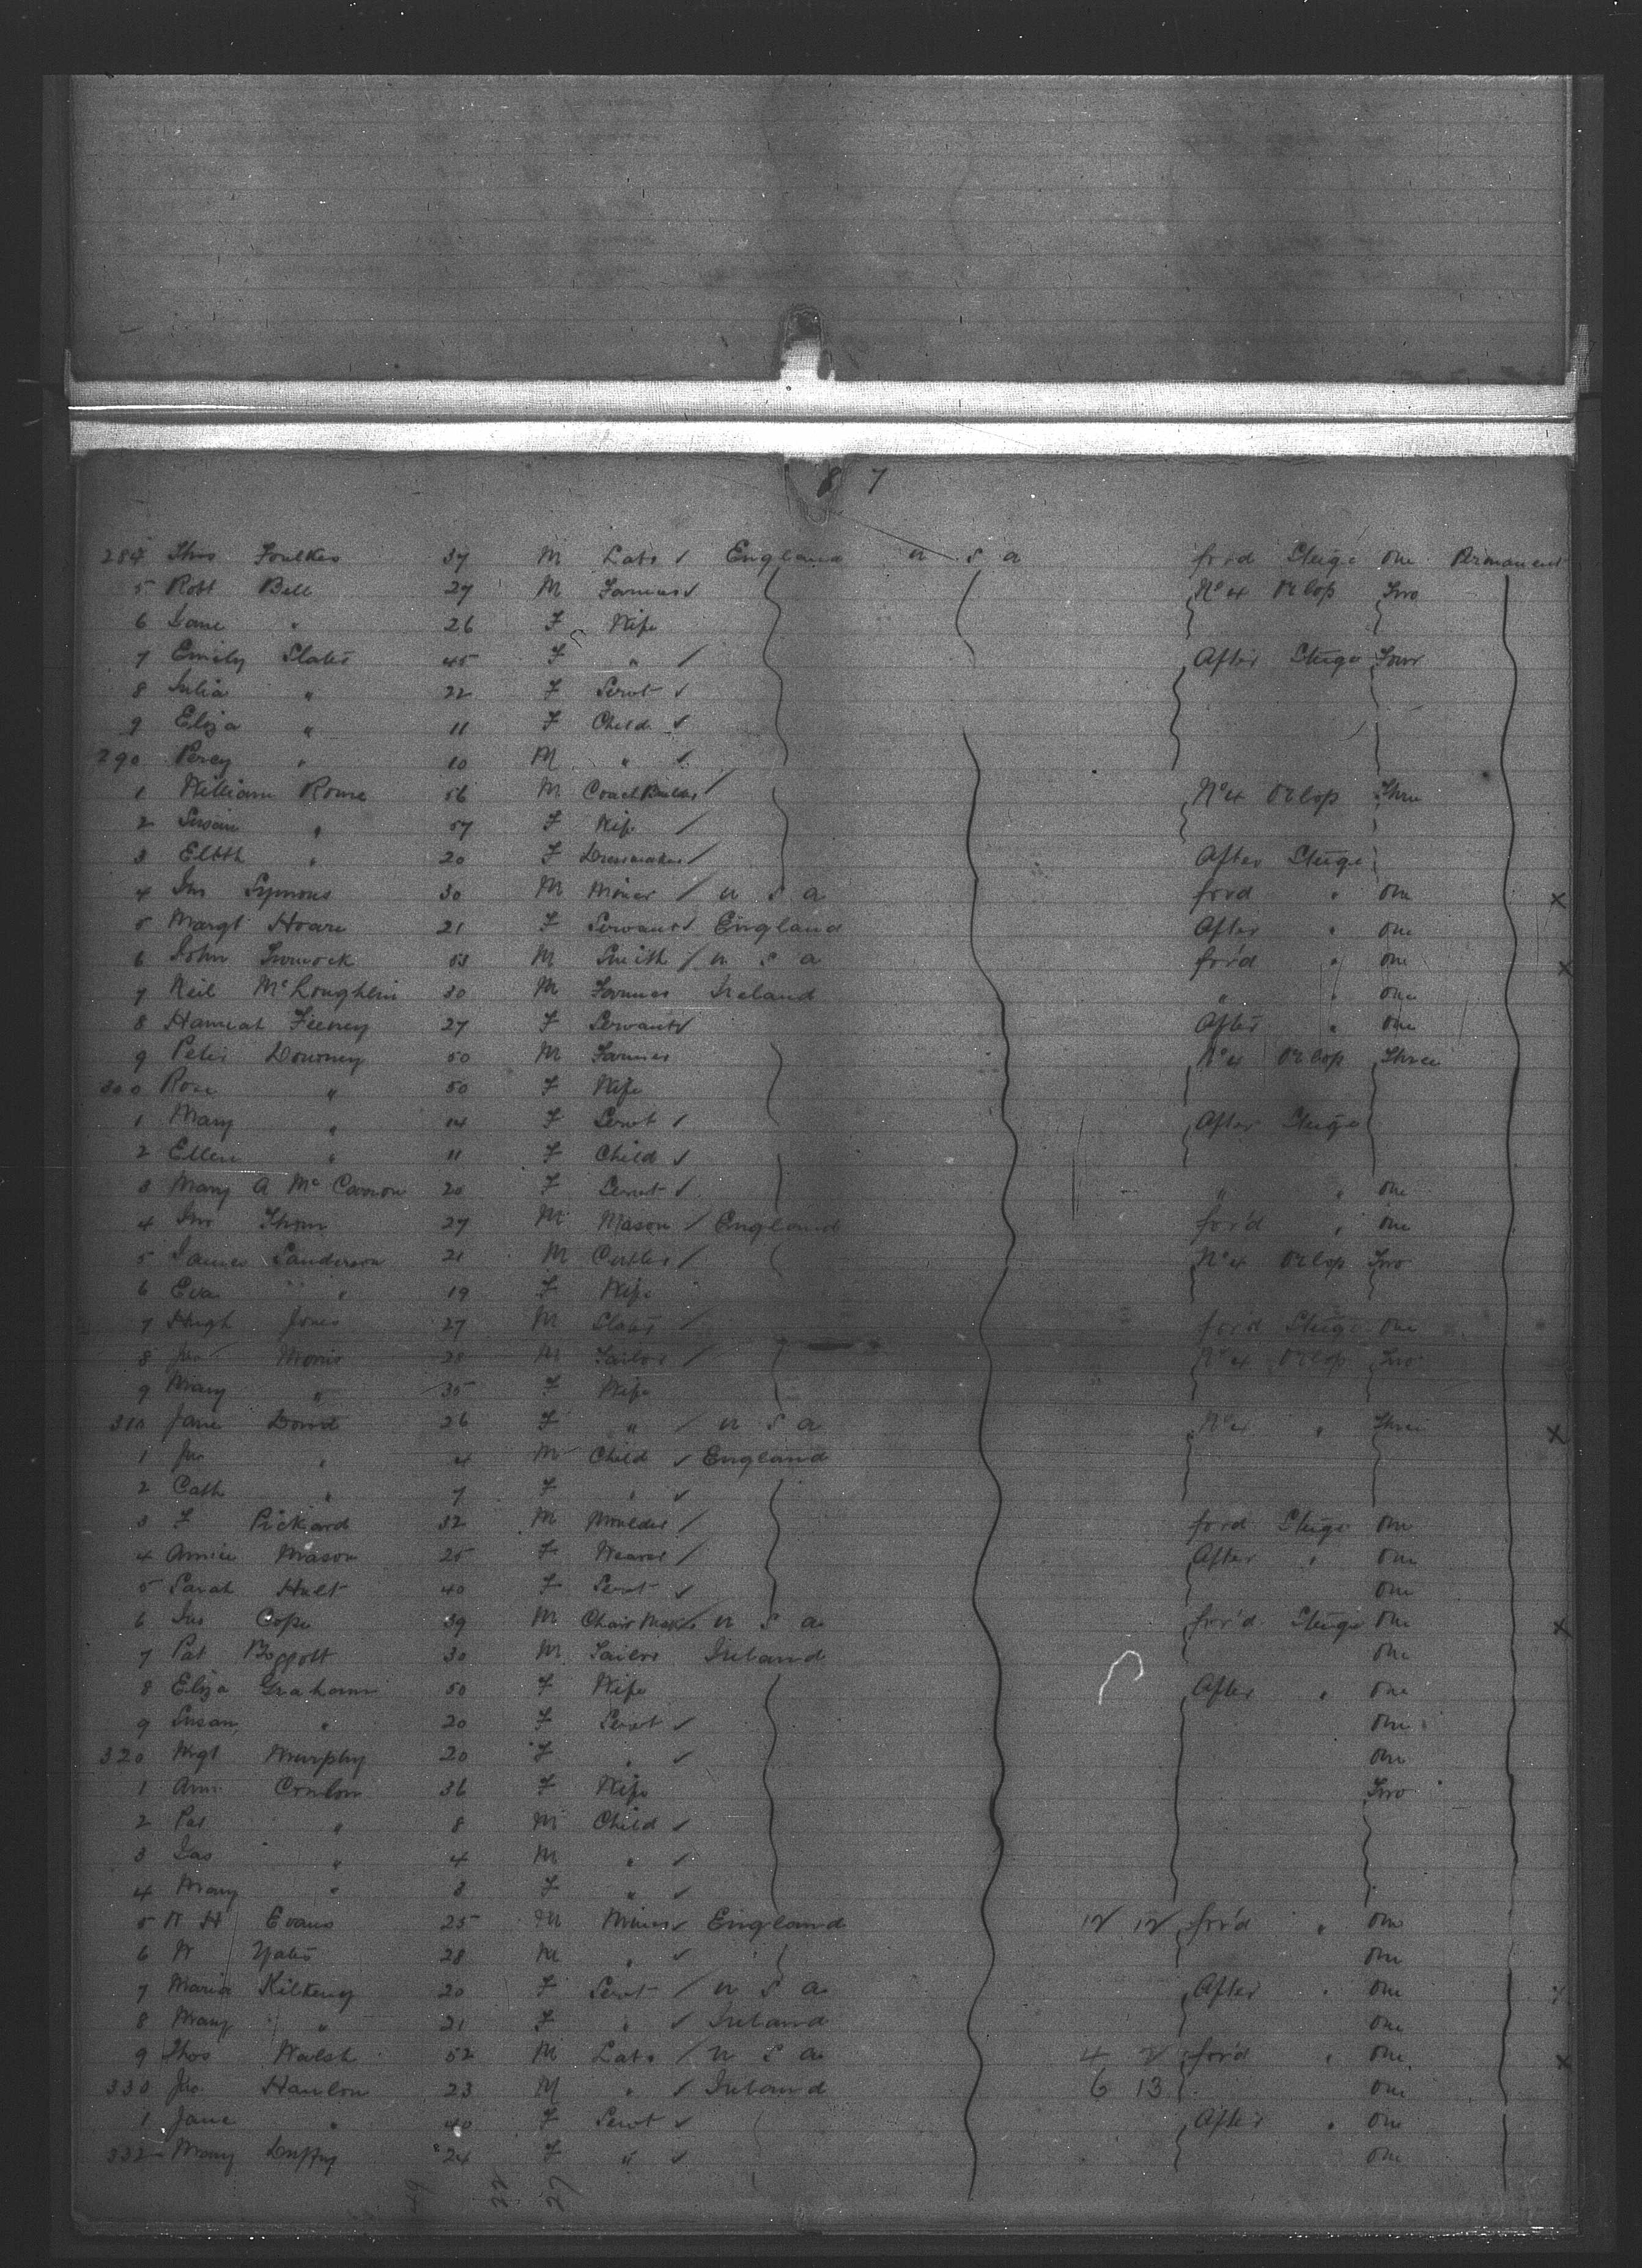 8 7
284 Thos Foulkes 37 M Labr / England U S A for'd Stege One Permanent
5 Robt Bell 27 M Farmer ✓ No 4 Orlop Two
6 Jane " 26 F Wife
7 Emily Slater 45 F " / After Stege Four
8 Julia " 22 F Servt ✓
9 Eliza " 11 F Child ✓
290 Percy " 10 M " ✓
1 William Rowe 56 M Coach Builder / No 4 Orlop Three
2 Susan " 57 F Wife /
3 Elbth " 20 F Dressmaker / After Stege
4 Jno Symons 30 M Miner / U S A for'd " One X
5 Margt Hoare 21 F Servant ✓ England After " One
6 John 53 M Smith / U S A for'd " One X
7 Neil McLoughlin 30 M Farmer Ireland " " One
8 Hannah Feeney 27 F Servant ✓ After " One
9 Peter Downey 50 M Farmer No 4 Orlop Three
300 Rose " 50 F Wife
1 Mary " 14 F Servt / After Stege
2 Ellen " 11 F Child ✓
3 Mary A McCarron 20 F Servt ✓ " " One
4 Jno Thom 27 M Mason / England for'd " One
5 James Sanderson 21 M Cutler / No 4 Orlop Two
6 Eva " 19 F Wife
7 Hugh Jones 27 M Slater / for'd Stege One
8 Jno Morris 28 M Tailor / No 4 Orlop Two
9 Mary " 35 F Wife
310 Jane Dowd 26 F " / U S A No 4 " Three X
1 Jno " 4 M Child ✓ England
2 Cath " 7 F " ✓
3 F Pickard 32 M Moulder / for'd Stege One
4 Annie Mason 25 F Weaver / After " One
5 Sarah Hult 40 F Servt ✓ One
6 Jas Cope 39 M Chair Maker / U S A for'd Stege One X
7 Pat Boggott 30 M Sailor Ireland One
8 Eliza Graham 50 F Wife After " One
9 Susan " 20 F Servt ✓ One
320 Mgt Murphy 20 F " ✓ One
1 Ann Conlon 36 F Wife Two
2 Pat " 8 M Child ✓
3 Jas " 4 M " ✓
4 Mary " 3 F " ✓
5 W H Evans 25 M Miner ✓ England 12 12 for'd " One
6 W Yates 28 M " ✓ One
7 Maria Kilkeny 20 F Servt / U S A After " One
8 Mary " 21 F " ✓ Ireland One
9 Thos Walsh 52 M Labr / U S A 4 2 for'd " One X
330 Jno Hanlon 23 M " ✓ Ireland 6 13 One
1 Jane " 40 F Servt ✓ After " One
332 Mary Duffy 24 F " ✓ One
49 22 27